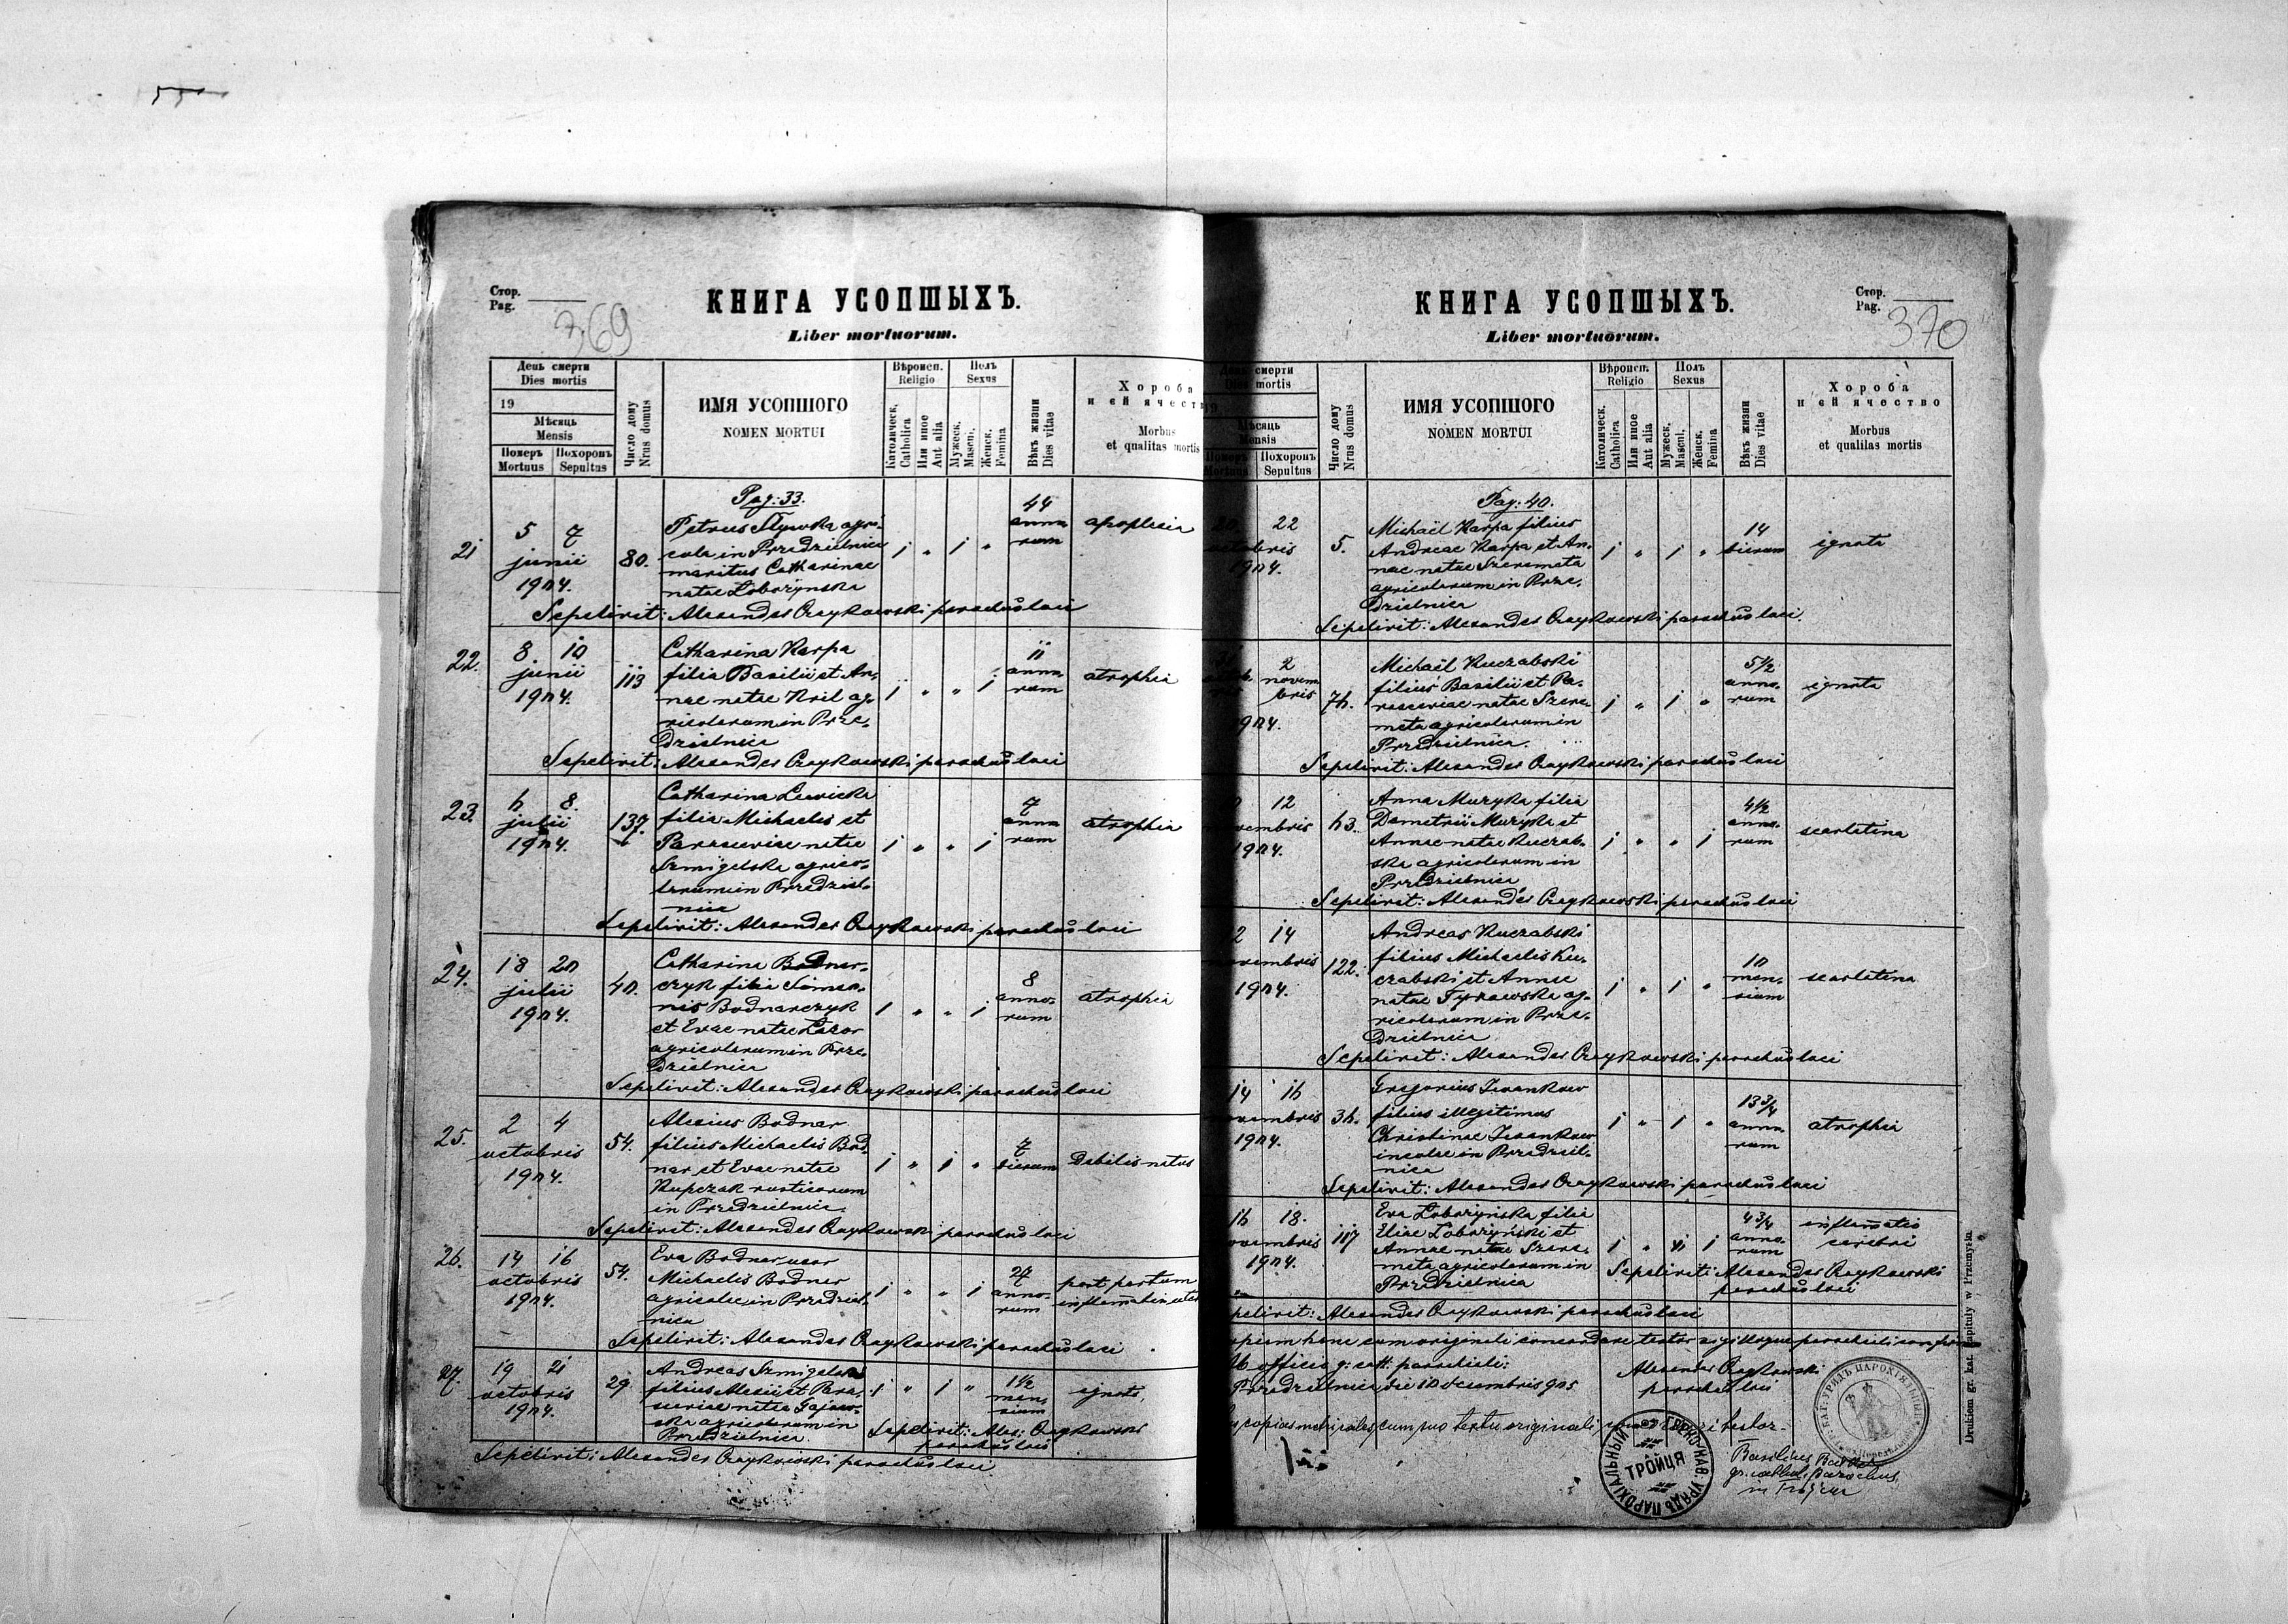 Стор.
Pag.
369
КНИГА УСОПШЫХЪ.
Liber mortuorum.
День смерти
Dies mortis
19
Мѣсяць
Mensis
Померъ Похоронъ
Mortuus Sepultus
Число дому
Nrus domus
ИМЯ УСОПШОГО
NOMEN MORTUI
Вѣроисп.
Religio
Католическ.
Catholica
Или иное
Aut alia
Полъ
Sexus
Мужеск.
Mascul.
Женск.
Femina
Вѣкъ жизни
Dies vitae
Хороба
и ей ячество
Morbus
et qualitas mortis
Pag: 33.
21 5 7 junii 1904. 80.
Petrus agri-
cola in Przedzielnica
maritus Catharinae
natae Łobozynska
1 " 1 " 44 anno-
rum
apoplexia
Sepelivit: Alexander Czaykowski parochus loci
22. 8. 10 junii 1904. 113
Catharina Karpa
filia Basilii et An-
nae natae Kril ag-
ricolarum in Prze-
dzielnica
1 " " 1 11 anno-
rum
atrophia
Sepelivit: Alexander Czaykowski parochus loci
23. 6 8. julii 1904. 137.
Catharina Lewicka
filia Michaelis et
Parasceviae natae
Szmigelska agrico-
larum in Przedziel-
nica
1 " " 1 7 anno-
rum
atrophia
Sepelivit: Alexander Czaykowski parochus loci
24. 18 20 julii 1904. 40.
Catharina Bodnar-
czyk filia Simeo-
nis Bodnarczyk
et Evae natae Lazor
agricolarum in Prze-
dzielnica
1 " " 1 8 anno-
rum
atrophia
Sepelivit: Alexander Czaykowski parochus loci
25. 2 4 octobris 1904. 54.
Alexius Bodnar
filius Michaelis Bod-
nar et Evae natae
Kupczak rusticorum
in Przedzielnica.
1 " 1 " 7 dierum
Debilis natus
Sepelivit: Alexander Czaykowski parochus loci
26. 14 16 octobris 1904. 54.
Eva Bodnar uxor
Michaelis Bodnar
agricolae in Przedziel-
nica
1 " " 1 27 anno-
rum
post partum
Sepelivit: Alexander Czaykowski parochus loci
27. 19 21 octobris 1904. 29.
Andreas Szmigelski
filius Alexii et Para-
sceviae natae
agricolarum in
Przedzielnica.
1 " 1 " 1½ men-
sium
ignota
Sepelivit: Alex: Czaykowski
parochus loci
Sepelivit: Alexander Czaykowski parochus loci.
Стор.
Pag.
370
КНИГА УСОПШЫХЪ.
Liber mortuorum.
смерти
mortis
Мѣсяць
Mensis
Похоронъ
Sepultus
Число дому
Nrus domus
ИМЯ УСОПШОГО
NOMEN MORTUI
Вѣроисп.
Religio
Католическ.
Catholica
Или иное
Aut alia
Полъ
Sexus
Мужеск.
Mascul.
Женск.
Femina
Вѣкъ жизни
Dies vitae
Хороба
и ей ячество
Morbus
et qualitas mortis
Pag: 40.
20 22 octobris 1904. 5.
Michaël Karpa filius
Andreae Karpa et An-
nae natae Szeremeta
agricolarum in Prze-
dzielnica
1 " 1 " 14 dierum
ignota
Sepelivit: Alexander Czaykowski parochus loci.
2 novem-
bris 76.
Michaël Kuczabski
filius Basilii et Pa-
rasceviae natae Szere-
meta agricolarum in
Przedzielnica.
1 " 1 " 5½ anno-
rum
ignota
Sepelivit: Alexander Czaykowski parochus loci
12 1904. 63.
Anna Muzyka filia
Demetrii Muzyka et
Annae natae Kuczab-
ska agricolarum in
Przedzielnica
1 " " 1 4½ anno-
rum
scarlatina
Sepelivit: Alexander Czaykowski parochus loci
14 1904. 122.
Andreas Kuczabski
filius Michaelis Ku-
czabski et Annae
natae Tyrawska ag-
ricolarum in Prze-
dzielnica
1 " 1 " 10 men-
sium
scarlatina
Sepelivit: Alexander Czaykowski parochus loci
14 16 1904. 36.
Gregorius Iwankow
filius illegitimus
Christinae Iwankow
incolae in Przedziel-
nica
1 " 1 " 13¾ anno-
rum
atrophia
Sepelivit: Alexander Czaykowski parochus loci
16 18. 1904. 117
Eva Łobozyńska filia
Eliae Łobozyński et
Annae natae Szere-
meta agricolarum in
Przedzielnica
1 " 1 4¾ anno-
rum
inflamatio
cerebri
Sepelivit: Alexander Czaykowski
parochus loci
Sepelivit: Alexander Czaykowski parochus loci
hanc cum originali concordare testor
officio g: cath: parochiali:
Przedzielnica die 10 decembris 905
Alexander Czaykowski
parochus loci
copias metricales cum suo textu originali testor.
Basilius
gr. cathol. parochus
in Trójca
ПАРОХІАЛЬНЫЙ УРЯДЪ
ТРÔЙЦЯ
Drukiem gr. kat. kapituły w Przemyślu.